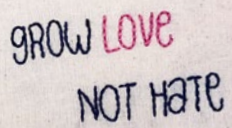 gROW LOVe
NOT HaTe